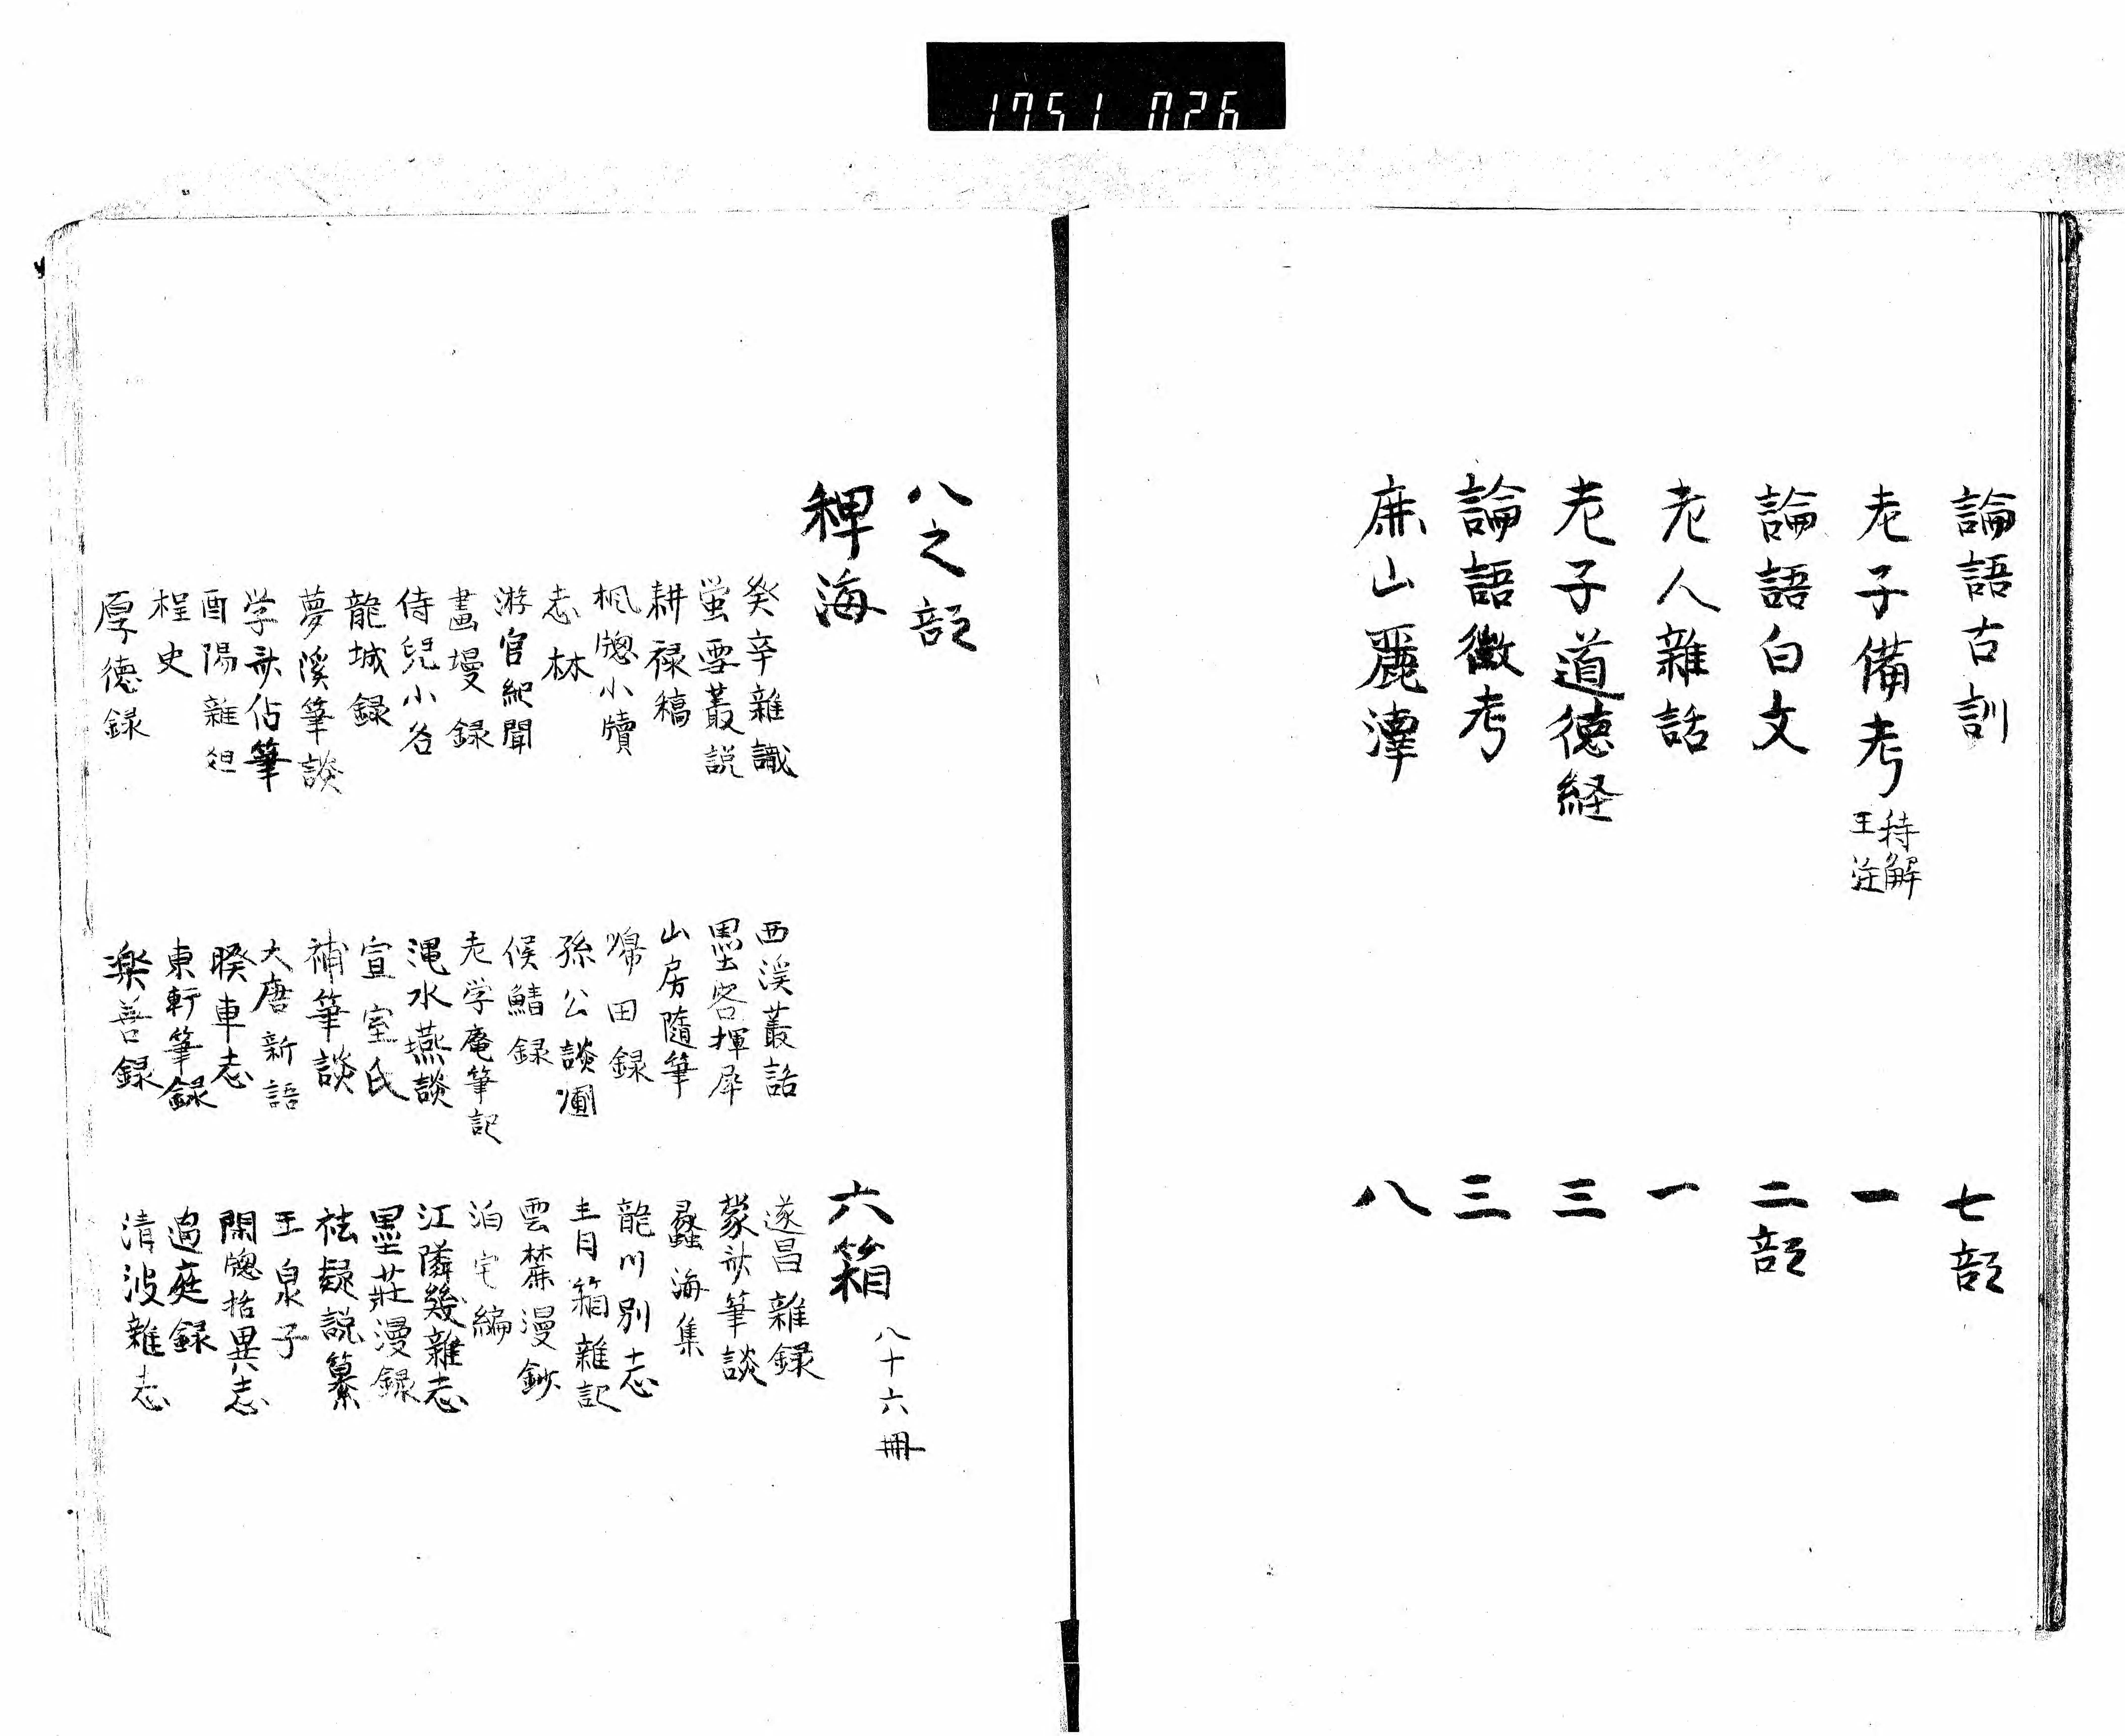 1751 026
論語古訓 七部
老子備考 王注 特解 一
論語白文 二部
老人雑話 一
老子道徳経 三
論語徴考 三
廉山麗澤 八
八之部
稗海 六箱 八十六冊
癸辛雜識 西渓叢話 遂昌雜録
蛍雪叢説 墨客揮犀 蒙斎筆談
耕禄稿 山房随筆 蠡海集
楓牕小牘 帰田録 龍川別志
志林 孫公談圃 青箱雜記
游官紀聞 候鯖録 雲麓漫鈔
畫墁録 老学庵筆記 泊宅編
侍兒小名 渑水燕談 江隣幾雜志
龍城録 宣室志 墨荘漫録
夢渓筆談 補筆談 袪疑説纂
学斎佔筆 大唐新語 玉泉子
酉陽雜俎 睽車志 閑牕括異志
桯史 東軒筆録 過庭録
厚徳録 楽善録 清波雜志